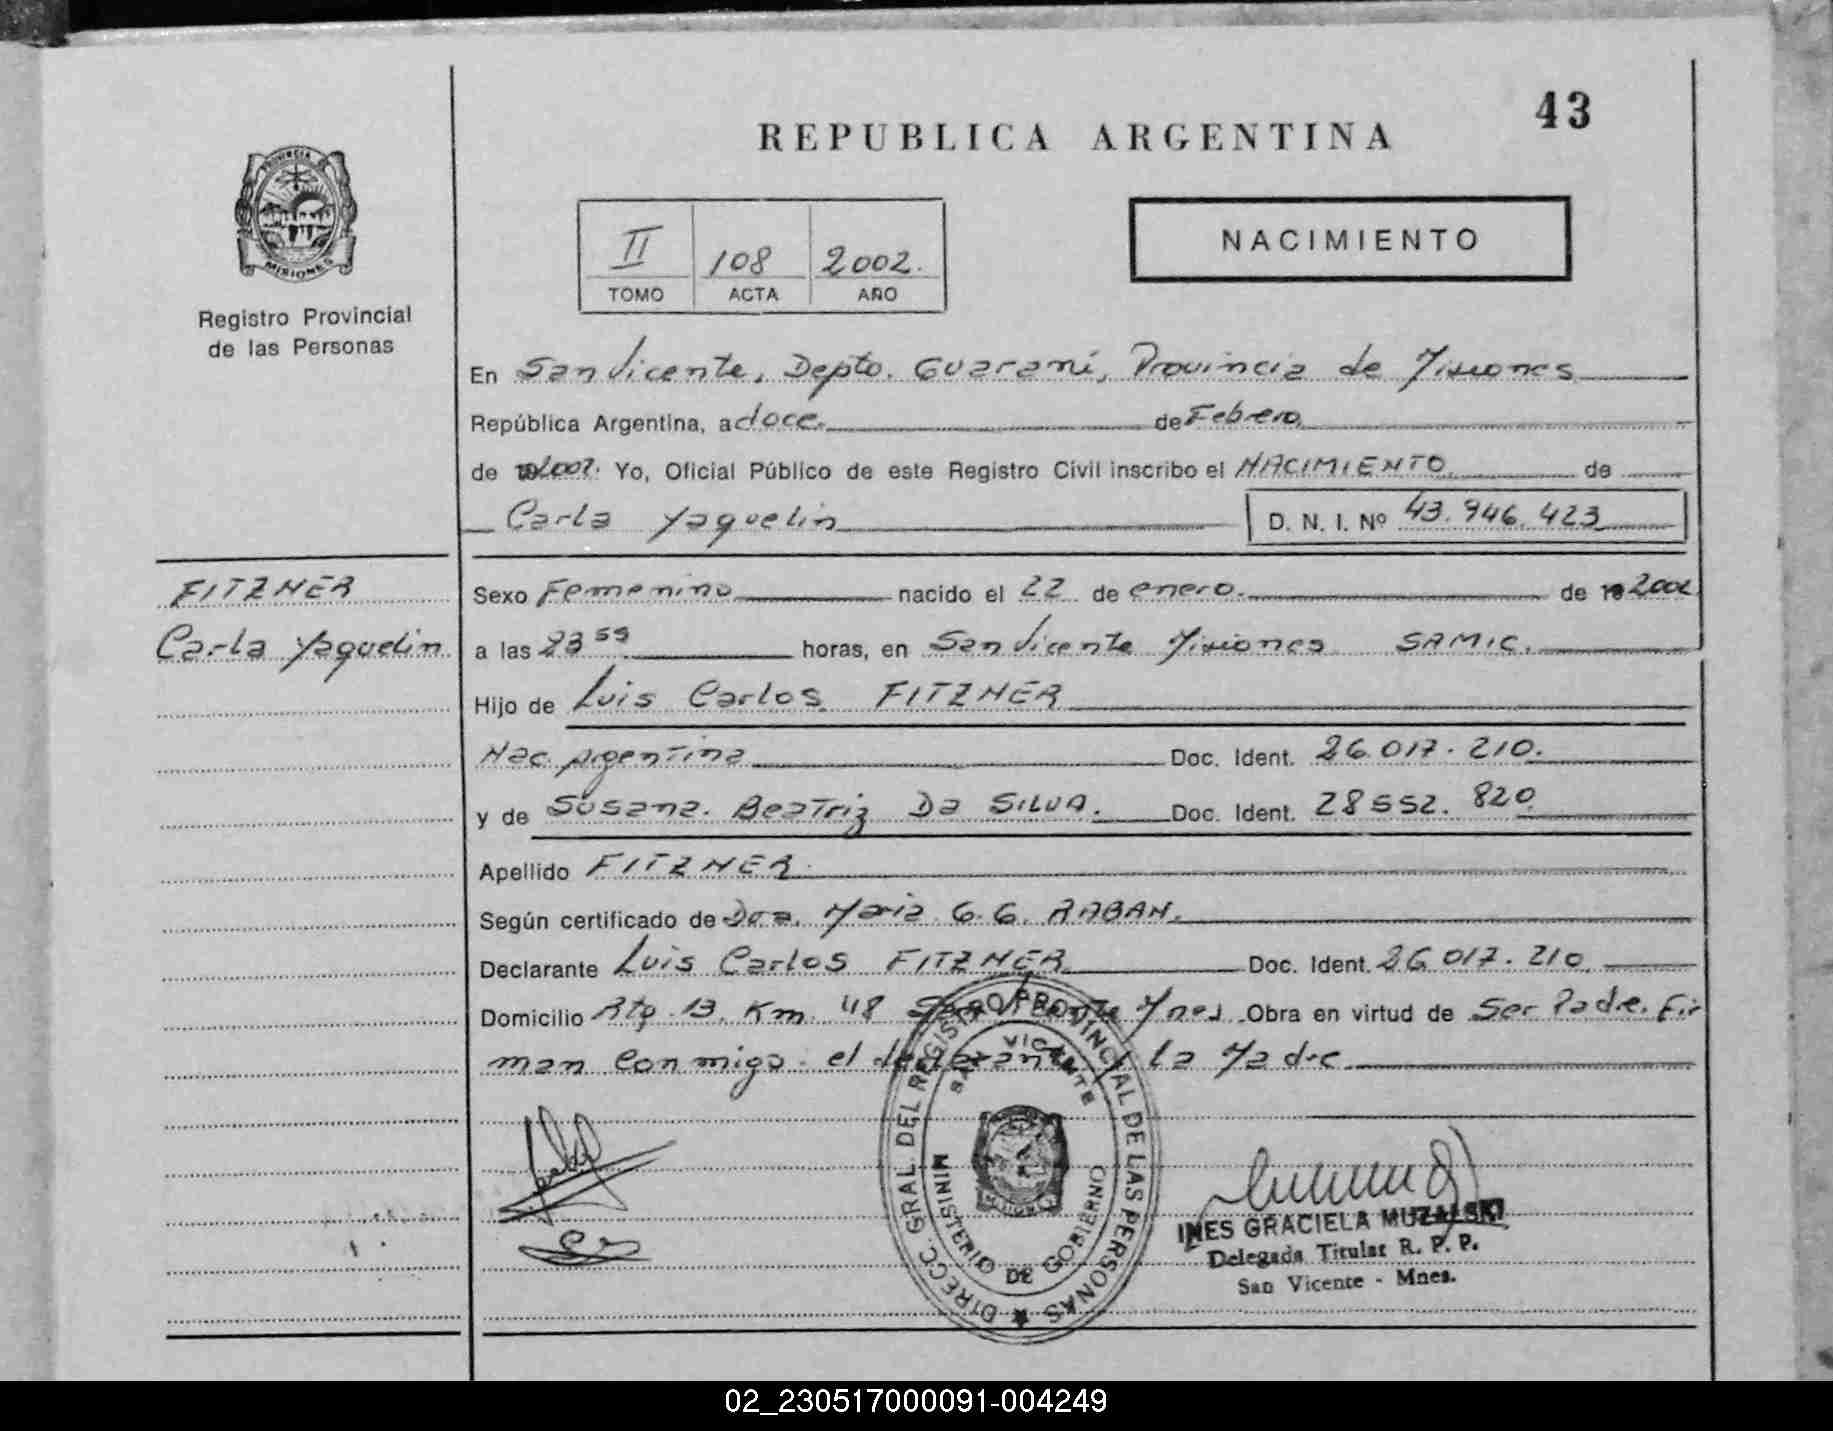 43
REPUBLICA ARGENTINA
PROVINCIA DE
MISIONES
Registro Provincial
de las Personas
II 108 2002.
TOMO ACTA AÑO
NACIMIENTO
En San Vicente, Depto. Guaraní, Provincia de Misiones
República Argentina, a doce. de Febrero
de 2002. Yo, Oficial Público de este Registro Civil inscribo el NACIMIENTO de
Carla Yaquelin D. N. I. Nº 43.946.423
FITZNER
Carla Yaquelin
Sexo Femenino nacido el 22 de enero. de 19 2002
a las 23 59 horas, en San Vicente Misiones SAMIC.
Hijo de Luis Carlos FITZNER
Nac. Argentina Doc. Ident. 26.017.210.
y de Susana. Beatriz Da SILVA. Doc. Ident. 28 552. 820
Apellido FITZNER
Según certificado de Dra. María G. G. RABAN.
Declarante Luis Carlos FITZNER Doc. Ident. 26 017. 210
Domicilio Rta 13 Km. 48 San Vicente Mnes Obra en virtud de Ser Padre. Fir
man conmigo. el declarante y la Madre
DIRECC. GRAL. DEL REGISTRO PROVINCIAL DE LAS PERSONAS
SAN VICENTE
MINISTERIO DE GOBIERNO
INES GRACIELA MUZALSKI
Delegada Titular R. P. P.
San Vicente - Mnes.
02_230517000091-004249